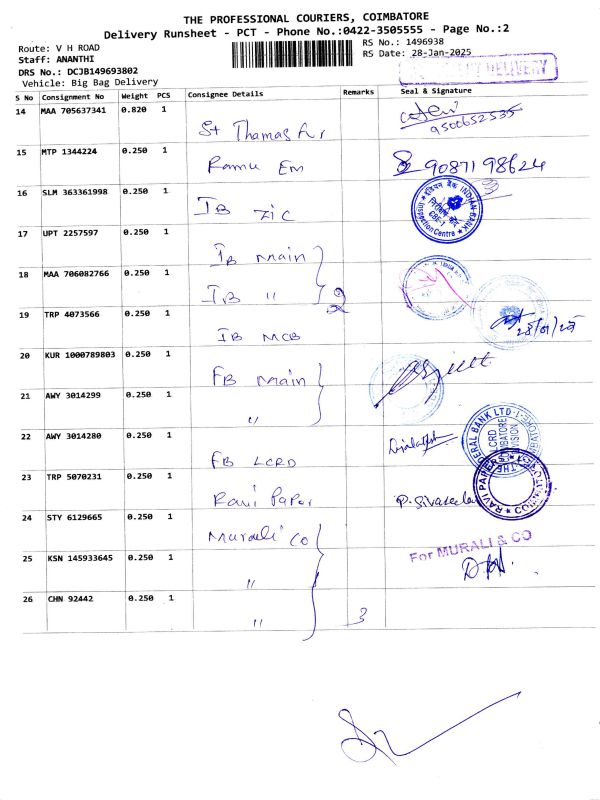 THE PROFESSIONAL COURIERS, COIMBATORE
Delivery Runsheet - PCT - Phone No.:0422-3505555 - Page No.:2
Route: V H ROAD
RS No.: 1496938
Staff: ANANTHI
RS Date: 28-Jan-2025
DRS No.: DCJB149693802
DELIVERY
Vehicle: Big Bag Delivery
S No Consignment No Weight PCS Consignee Details Remarks Seal & Signature
14 MAA 705637341 0.820 1
St Thamas 9500652535
15 MTP 1344224 0.250 1
Ramu Em 9087198624
16 SLM 363361998 0.250 1
IB ZIC
INDIAN BANK Inspection Centre CBE-1
17 UPT 2257597 0.250 1
IB Main
18 MAA 706082766 0.250 1
IB " 2
19 TRP 4073566 0.250 1
IB MCB 28/01/25
20 KUR 1000789803 0.250 1
FB Main
21 AWY 3014299 0.250 1
"
22 AWY 3014280 0.250 1
FB LCRD
THE FEDERAL BANK LTD. LCRD COIMBATORE DIVISION
23 TRP 5070231 0.250 1
Ravi Paper
RAVI PAPERS
24 STY 6129665 0.250 1
Murali Co
For MURALI & CO
25 KSN 145933645 0.250 1
"
26 CHN 92442 0.250 1
" 3